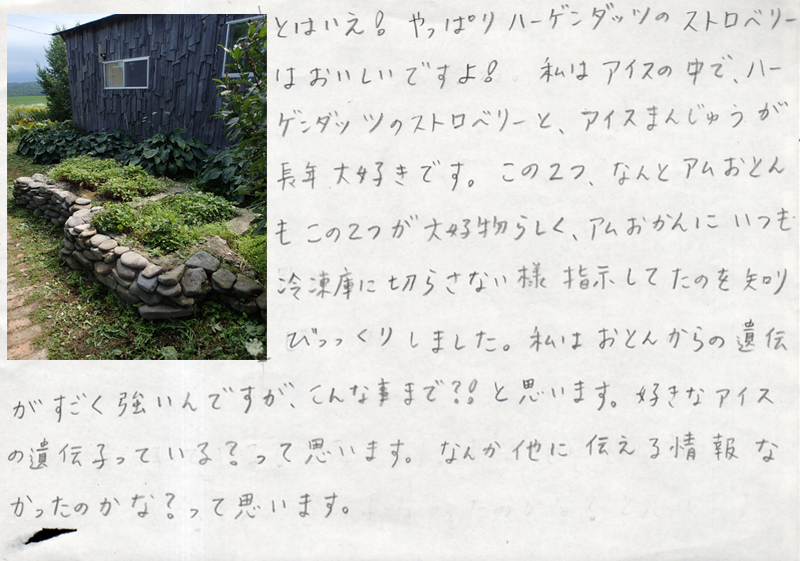 とはいえ! やっぱりハーゲンダッツのストロベリー
はおいしいですよ! 私はアイスの中で、ハー
ゲンダッツのストロベリーと、アイスまんじゅうが
長年大好きです。この2つ、なんとアムおとん
もこの2つが大好物らしく、アムおかんにいつも
冷凍庫に切らさない様指示してたのを知り
びっっくりしました。私はおとんからの遺伝
がすごく強いんですが、こんな事まで?!と思います。好きなアイス
の遺伝子っている?って思います。なんか他に伝える情報な
かったのかな?って思います。